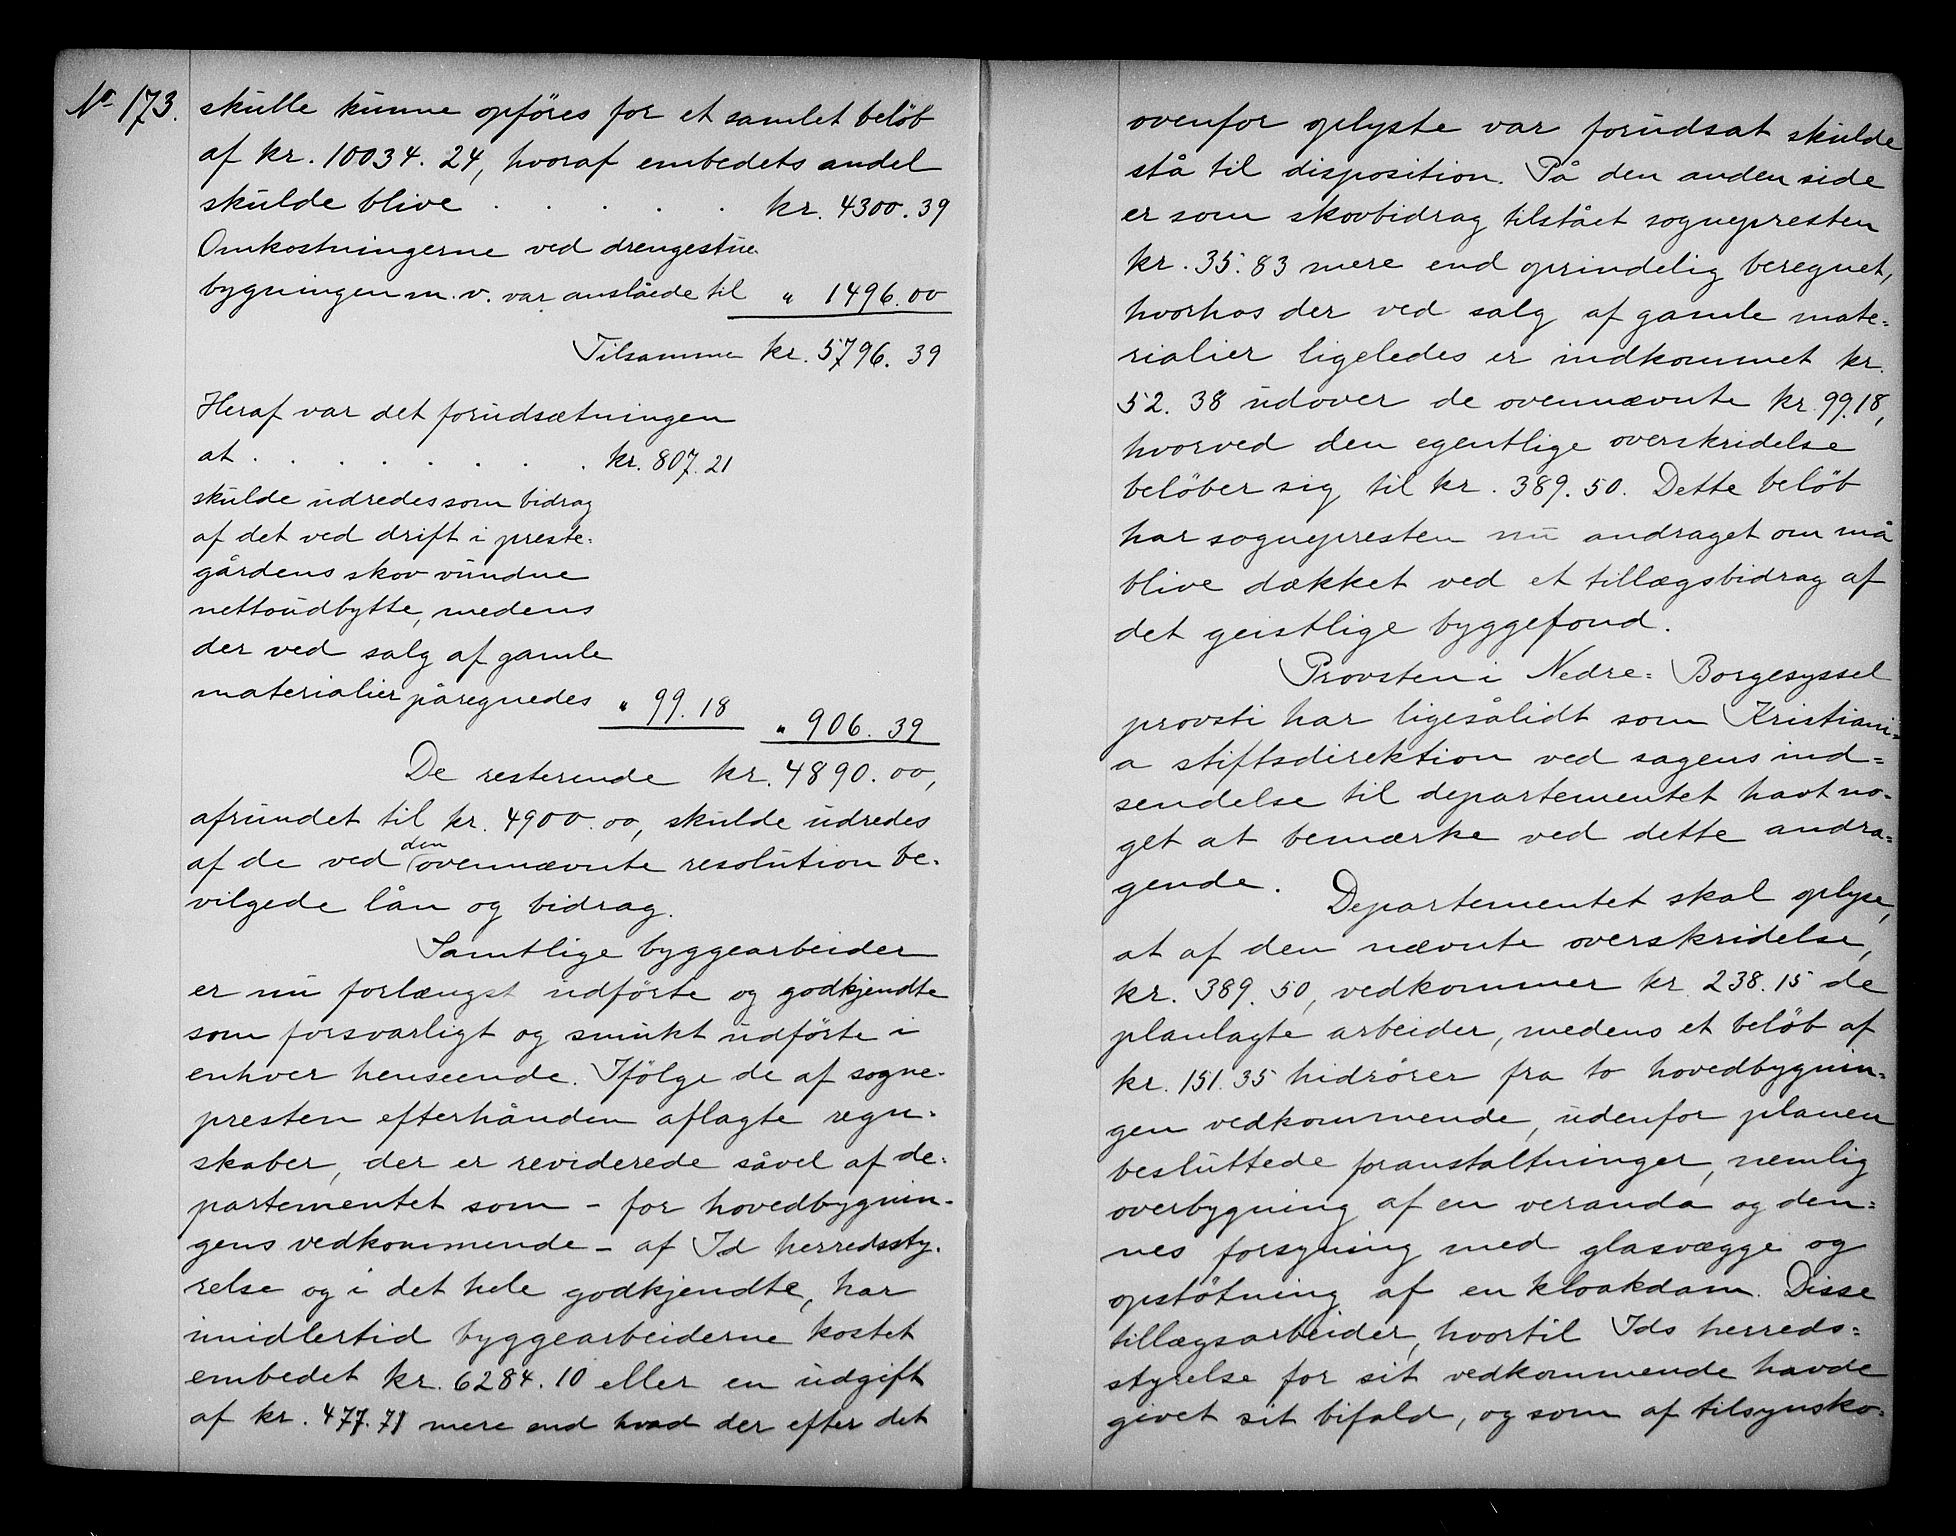 No 173.
skulle kunne opföres for et samlet belöb
af kr. 10034. 24, hvoraf embedets andel
skulde blive . . . . . kr. 4300. 39
Omkostningerne ved drengestue
bygningen m. v. var anslåede til " 1496. 00
Tilsammen kr. 5796. 39
Heraf var det forudsætningen
at . . . . . . . . kr. 807. 21
skulde udredes som bidrag
af det ved drift i preste-
gårdens skov vundne
nettoudbytte, medens
der ved salg af gamle
materialier påregnedes " 99. 18 " 906. 39
De resterende kr. 4890. 00,
afrundet til kr. 4900. 00, skulde udredes
af de ved den ovennævnte resolution be-
vilgede lån og bidrag.
Samtlige byggearbeider
er nu forlængst udförte og godkjendte
som forsvarligt og smukt udförte i
enhver henseende. Ifölge de af sogne-
presten efterhånden aflagte regn-
skaber, der er reviderede såvel af de-
partementet som - for hovedbygnin-
gens vedkommende - af Id herredssty-
relse og i det hele godkjendte, har
imidlertid byggearbeiderne kostet
embedet kr. 6284. 10 eller en udgift
af kr. 477. 71 mere end hvad der efter det
ovenfor oplyste var forudsat skulde
stå til disposition. På den anden side
er som skovbidrag tilstået sognepresten
kr. 35. 83 mere end oprindelig beregnet,
hvorhos der ved salg af gamle mate-
rialier ligeledes er indkommet kr.
52. 38 udover de ovennævnte kr. 99. 18,
hvorved den egentlige overskridelse
belöber sig til kr. 389. 50. Dette belöb
har sognepresten nu andraget om må
blive dækket ved et tillægsbidrag af
det geistlige byggefond.
Provsten i Nedre- Borgesyssel
provsti har ligesålidt som Kristiani-
a stiftsdirektion ved sagens ind-
sendelse til departementet havt no-
get at bemærke ved dette andra-
gende.
Departementet skal oplyse,
at af den nævnte overskridelse,
kr. 389. 50, vedkommer kr. 238. 15 de
planlagte arbeider, medens et belöb af
kr. 151. 35 hidrörer fra to hovedbygnin-
gen vedkommende, udenfor planen
besluttede foranstaltninger, nemlig
overbygning af en veranda og den-
nes forsyning med glasvægge og
opstötning af en kloakdam. Disse
tillægsarbeider, hvortil Ids herreds-
styrelse for sit vedkommende havde
givet sit bifald, og som af tilsynsko-